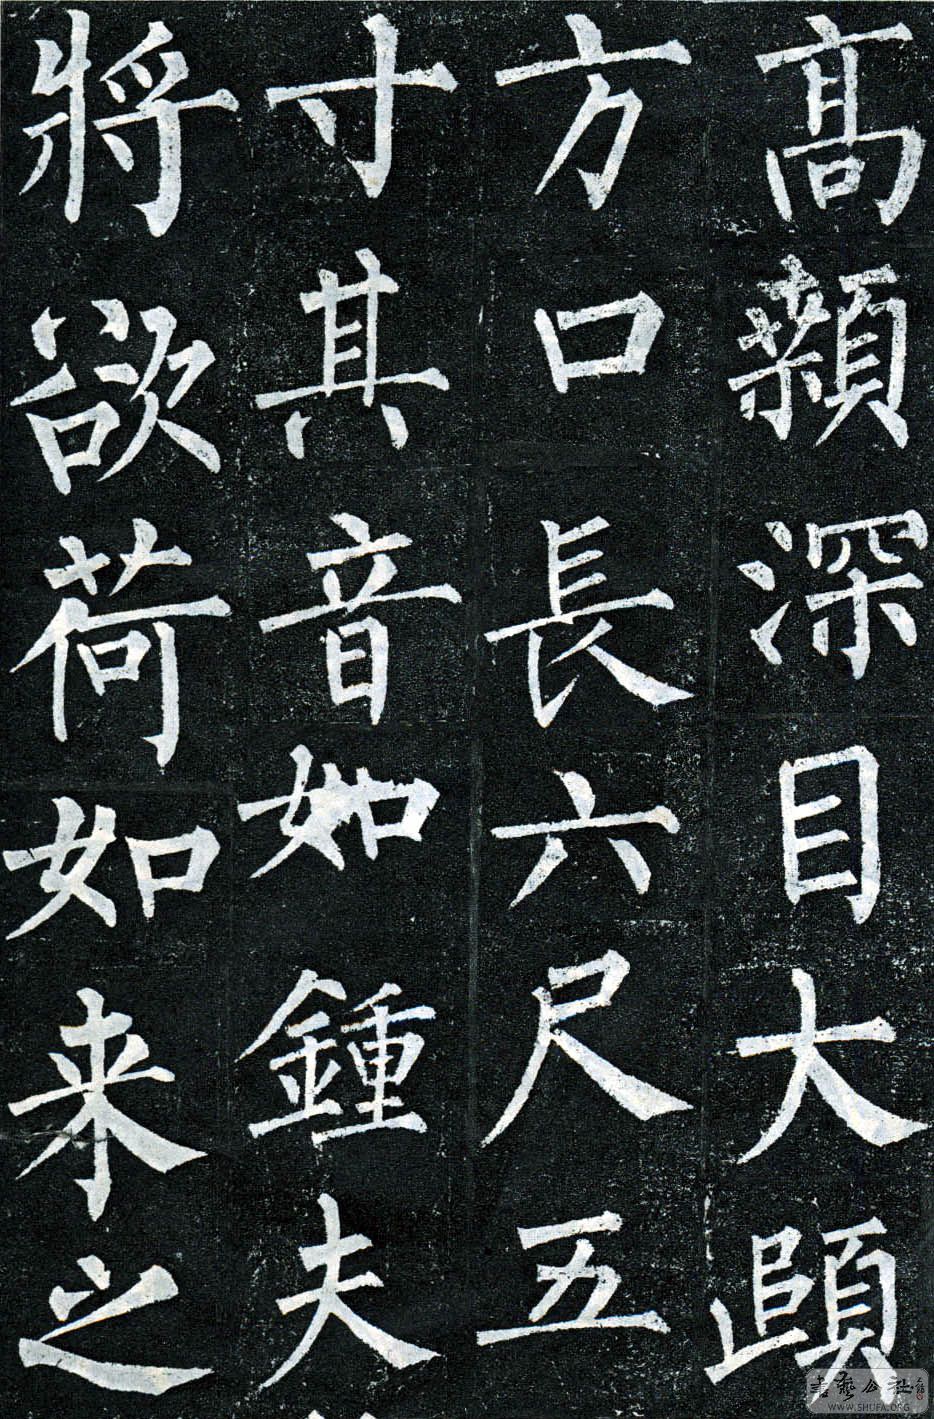 髙顙深目大頤
方口長六尺五
寸其音如鍾夫
將欲荷如来之
书艺公社
WWW.SHUFA.ORG